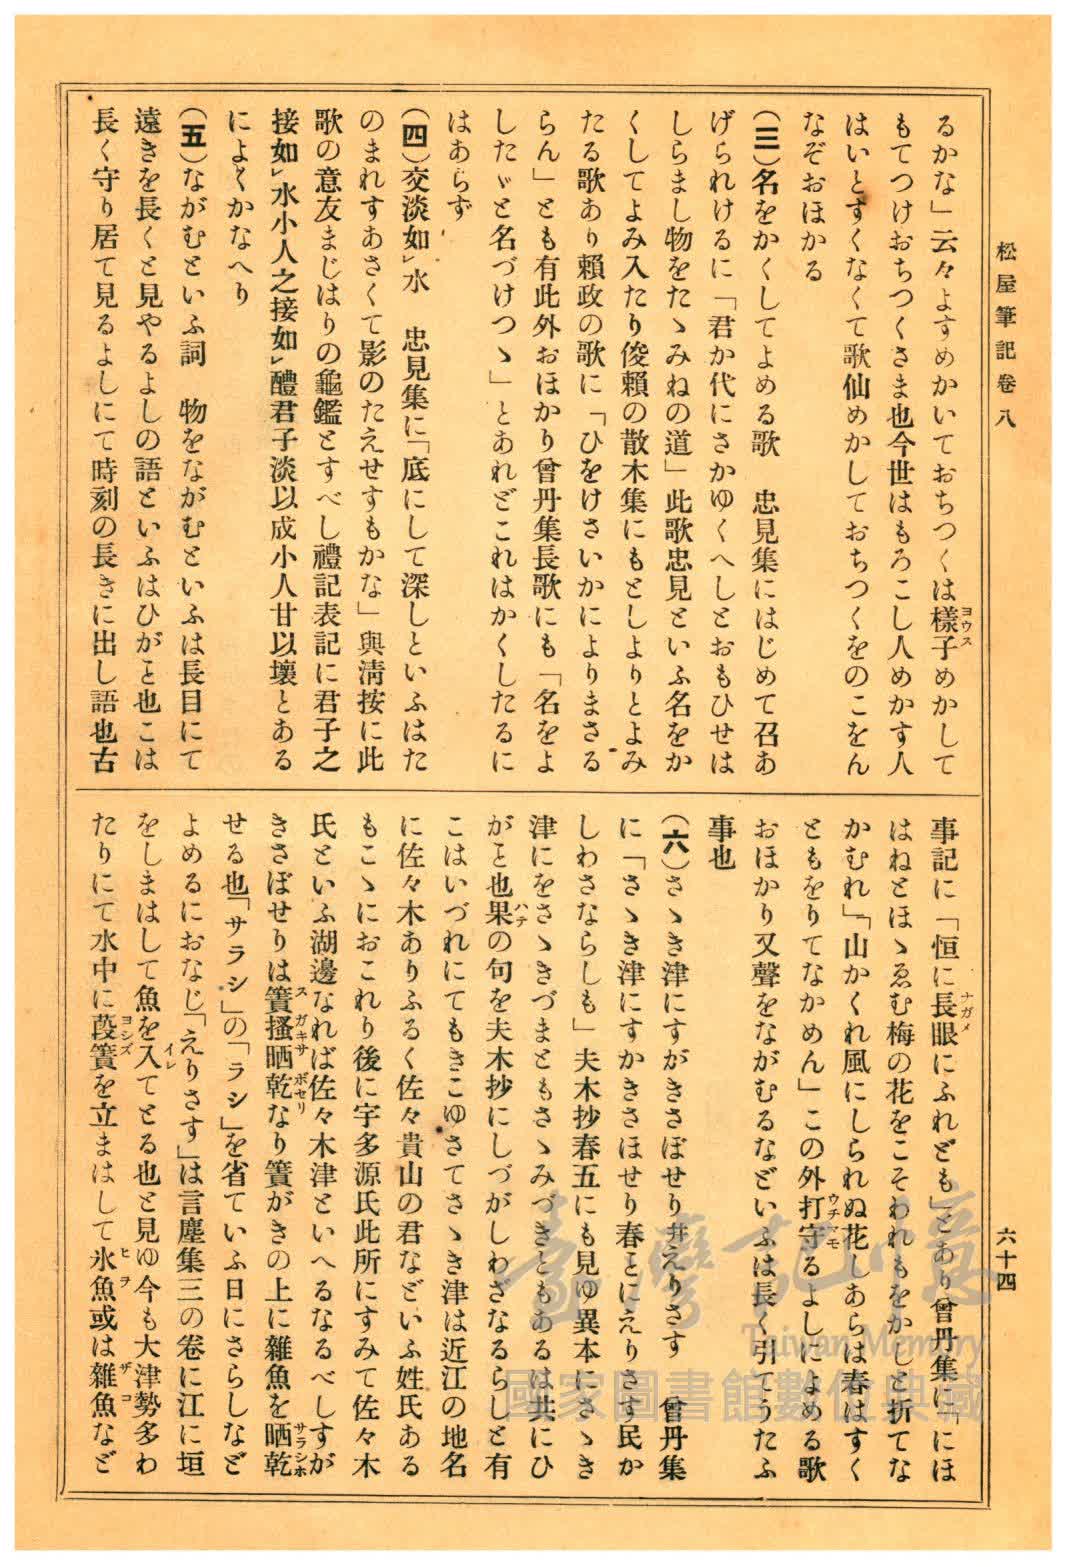 松屋筆記卷八
六十四
るかな」云々よすめかいておちつくは樣子めかして
もてつけおちつくさま也今世はもろこし人めかす人
はいとすくなくて歌仙めかしておちつくをのこをん
なぞおほかる
(三)名をかくしてよめる歌　忠見集にはじめて召あ
げられけるに「君か代にさかゆくへしとおもひせは
しらまし物をたゝみねの道」此歌忠見といふ名をか
くしてよみ入たり俊賴の散木集にもとしよりとよみ
たる歌あり賴政の歌に「ひをけさいかによりまさる
らん」とも有此外おほかり曾丹集長歌にも「名をよ
したゞと名づけつゝ」とあれどこれはかくしたるに
はあらず
(四)交淡如レ水　忠見集に「底にして深しといふはた
のまれすあさくて影のたえせすもかな」與淸按に此
歌の意友まじはりの龜鑑とすべし禮記表記に君子之
接如レ水小人之接如レ醴君子淡以成小人甘以壞とある
によくかなへり
(五)ながむといふ詞　物をながむといふは長目にて
遠きを長くと見やるよしの語といふはひがヿ也こは
長く守り居て見るよしにて時刻の長きに出し語也古
事記に「恒に長眼にふれども」とあり曾丹集に「にほ
はねとほゝゑむ梅の花をこそわれもをかしと折てな
かむれ」「山かくれ風にしられぬ花しあらは春はすく
ともをりてなかめん」この外打守るよしによめる歌
おほかり又聲をながむるなどいふは長く引てうたふ
事也
(六)さゝき津にすがきさぼせり幷えりさす　曾丹集
に「さゝき津にすかきさほせり春ヿにえりさす民か
しわさならしも」夫木抄春五にも見ゆ異本にさゝき
津にをさゝきづまともさゝみづきともあるは共にひ
がヿ也果の句を夫木抄にしづがしわざなるらしと有
こはいづれにてもきこゆさてさゝき津は近江の地名
に佐々木ありふるく佐々貴山の君などいふ姓氏ある
もこゝにおこれり後に宇多源氏此所にすみて佐々木
氏といふ湖邊なれば佐々木津といへるなるべしすが
きさぼせりは簀搔晒乾なり簀がきの上に雜魚を晒乾
せる也「サラシ」の「ラシ」を省ていふ日にさらしなど
よめるにおなじ「えりさす」は言塵集三の卷に江に垣
をしまはして魚を入てとる也と見ゆ今も大津勢多わ
たりにて水中に葭簀を立まはして氷魚或は雜魚など
ヨウス
ナガメ
ウチマモ
ハテ
スガキサボセリ
サラシホ
イレ
ヨシズ
ヒヲ
ザコ
臺灣記憶
Taiwan Memory
國家圖書館數位典藏